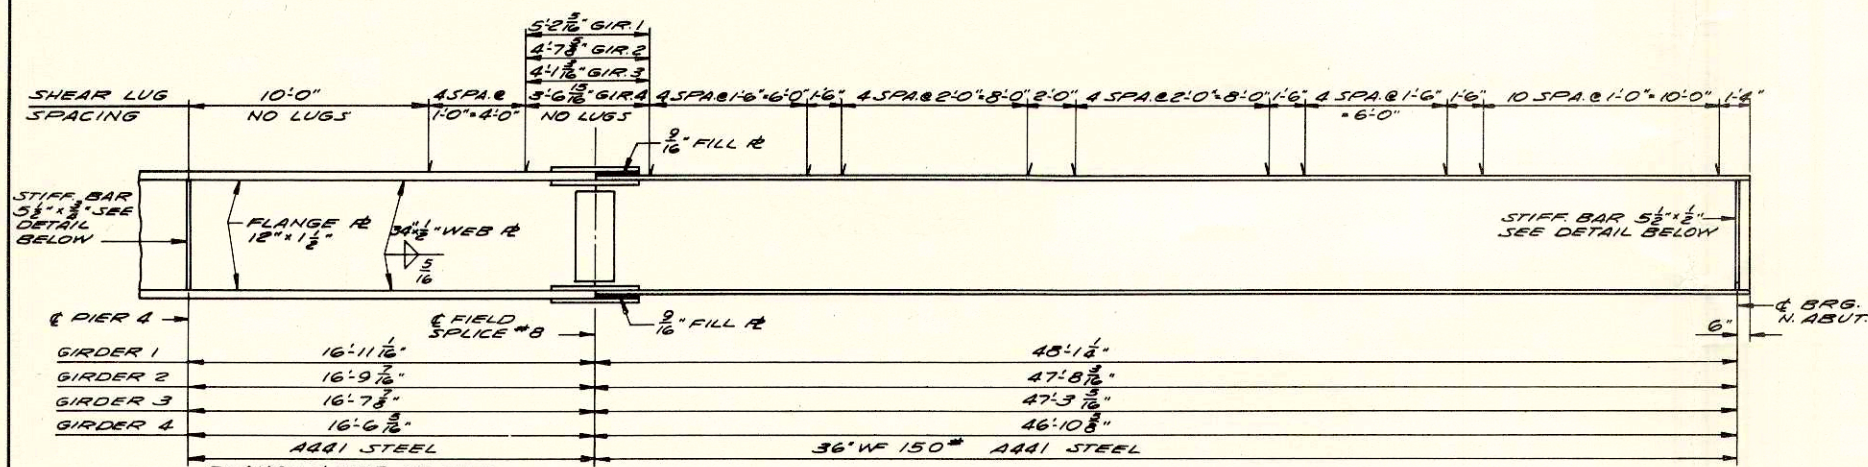 5'-2 5/16" GIR. 1
4'-7 5/8" GIR. 2
4'-1 3/16" GIR. 3
SHEAR LUG SPACING
10'-0" NO LUGS
4 SPA. @ 1'-0"=4'-0"
3'-6 15/16" GIR. 4 NO LUGS
4 SPA. @ 1'-6"=6'-0"
1'-6"
4 SPA. @ 2'-0"=8'-0"
2'-0"
4 SPA. @ 2'-0"=8'-0"
1'-6"
4 SPA. @ 1'-6" =6'-0"
1'-6"
10 SPA. @ 1'-0"=10'-0"
1'-4"
9/16" FILL ⅊
STIFF. BAR
SEE
DETAIL
BELOW
FLANGE ⅊
12" x 1 1/2"
34" x 1/2" WEB ⅊
5/16
STIFF. BAR 5 1/2" x 1/2"
SEE DETAIL BELOW
℄ PIER 4
℄ FIELD
SPLICE #8
9/16" FILL ⅊
6"
℄ BRG.
N. ABUT.
GIRDER 1 16'-11 1/16" 48'-1 1/4"
GIRDER 2 16'-9 7/16" 47'-8 3/16"
GIRDER 3 16'-7 7/8" 47'-3 5/16"
GIRDER 4 16'-6 5/16" 46'-10 5/8"
A441 STEEL 36" WF 150# A441 STEEL